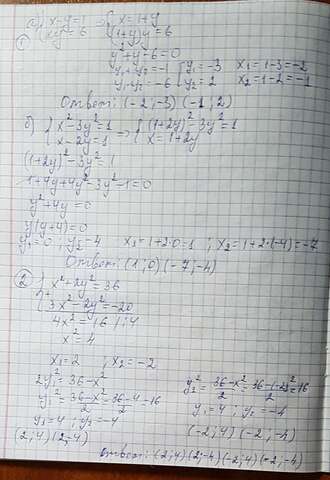 а) { x-y=1 => { x=1+y
① { xy=6 { (1+y)y=6
y²+y-6=0
y₁+y₂=-1 { y₁=-3 x₁=1-3=-2
y₁·y₂=-6 { y₂=2 x₂=1-2=-1
Ответ: (-2;-3) (-1;2)
б) { x²-3y²=1 => { (1+2y)²-3y²=1
{ x-2y=1 { x=1+2y
(1+2y)²-3y²=1
1+4y+4y²-3y²-1=0
y²+4y=0
y(y+4)=0
y₁=0; y₂=-4 x₁=1+2·0=1; x₂=1+2·(-4)=-7
Ответ: (1;0) (-7;-4)
② { x²+2y²=36
{ 3x²-2y²=-20
4x²=16 /:4
x²=4
x₁=2; x₂=-2
2y₁²=36-x²
y₁²=36-x²/2=36-4/2=16 y₂²=36-x²/2=36-(-2)²/2=16
y₁=4; y₂=-4 y₁=4; y₂=-4
(2;4) (2;-4) (-2;4) (-2;-4)
Ответ: (2;4) (2;-4) (-2;4) (-2;-4)